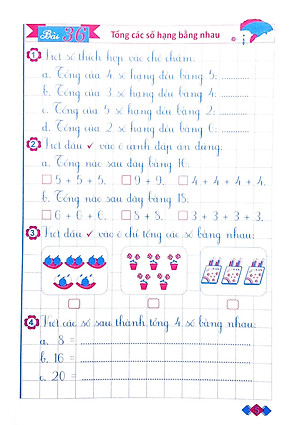 Bài 36 Tổng các số hạng bằng nhau
1 Viết số thích hợp vào chỗ chấm:
a. Tổng của 4 số hạng đều bằng 5: ............
b. Tổng của 3 số hạng đều bằng 4: ............
c. Tổng của 5 số hạng đều bằng 2: ............
d. Tổng của 2 số hạng đều bằng 6: ............
2 Viết dấu ✓ vào ô cạnh đáp án đúng:
a. Tổng nào sau đây bằng 16:
5 + 5 + 5. 9 + 9. 4 + 4 + 4 + 4.
b. Tổng nào sau đây bằng 18.
6 + 6 + 6. 8 + 8. 3 + 3 + 3 + 3.
3 Viết dấu ✓ vào ô chỉ tổng các số bằng nhau:
4 Viết các số sau thành tổng 4 số bằng nhau:
a. 8 =
b. 16 =
c. 20 =
5